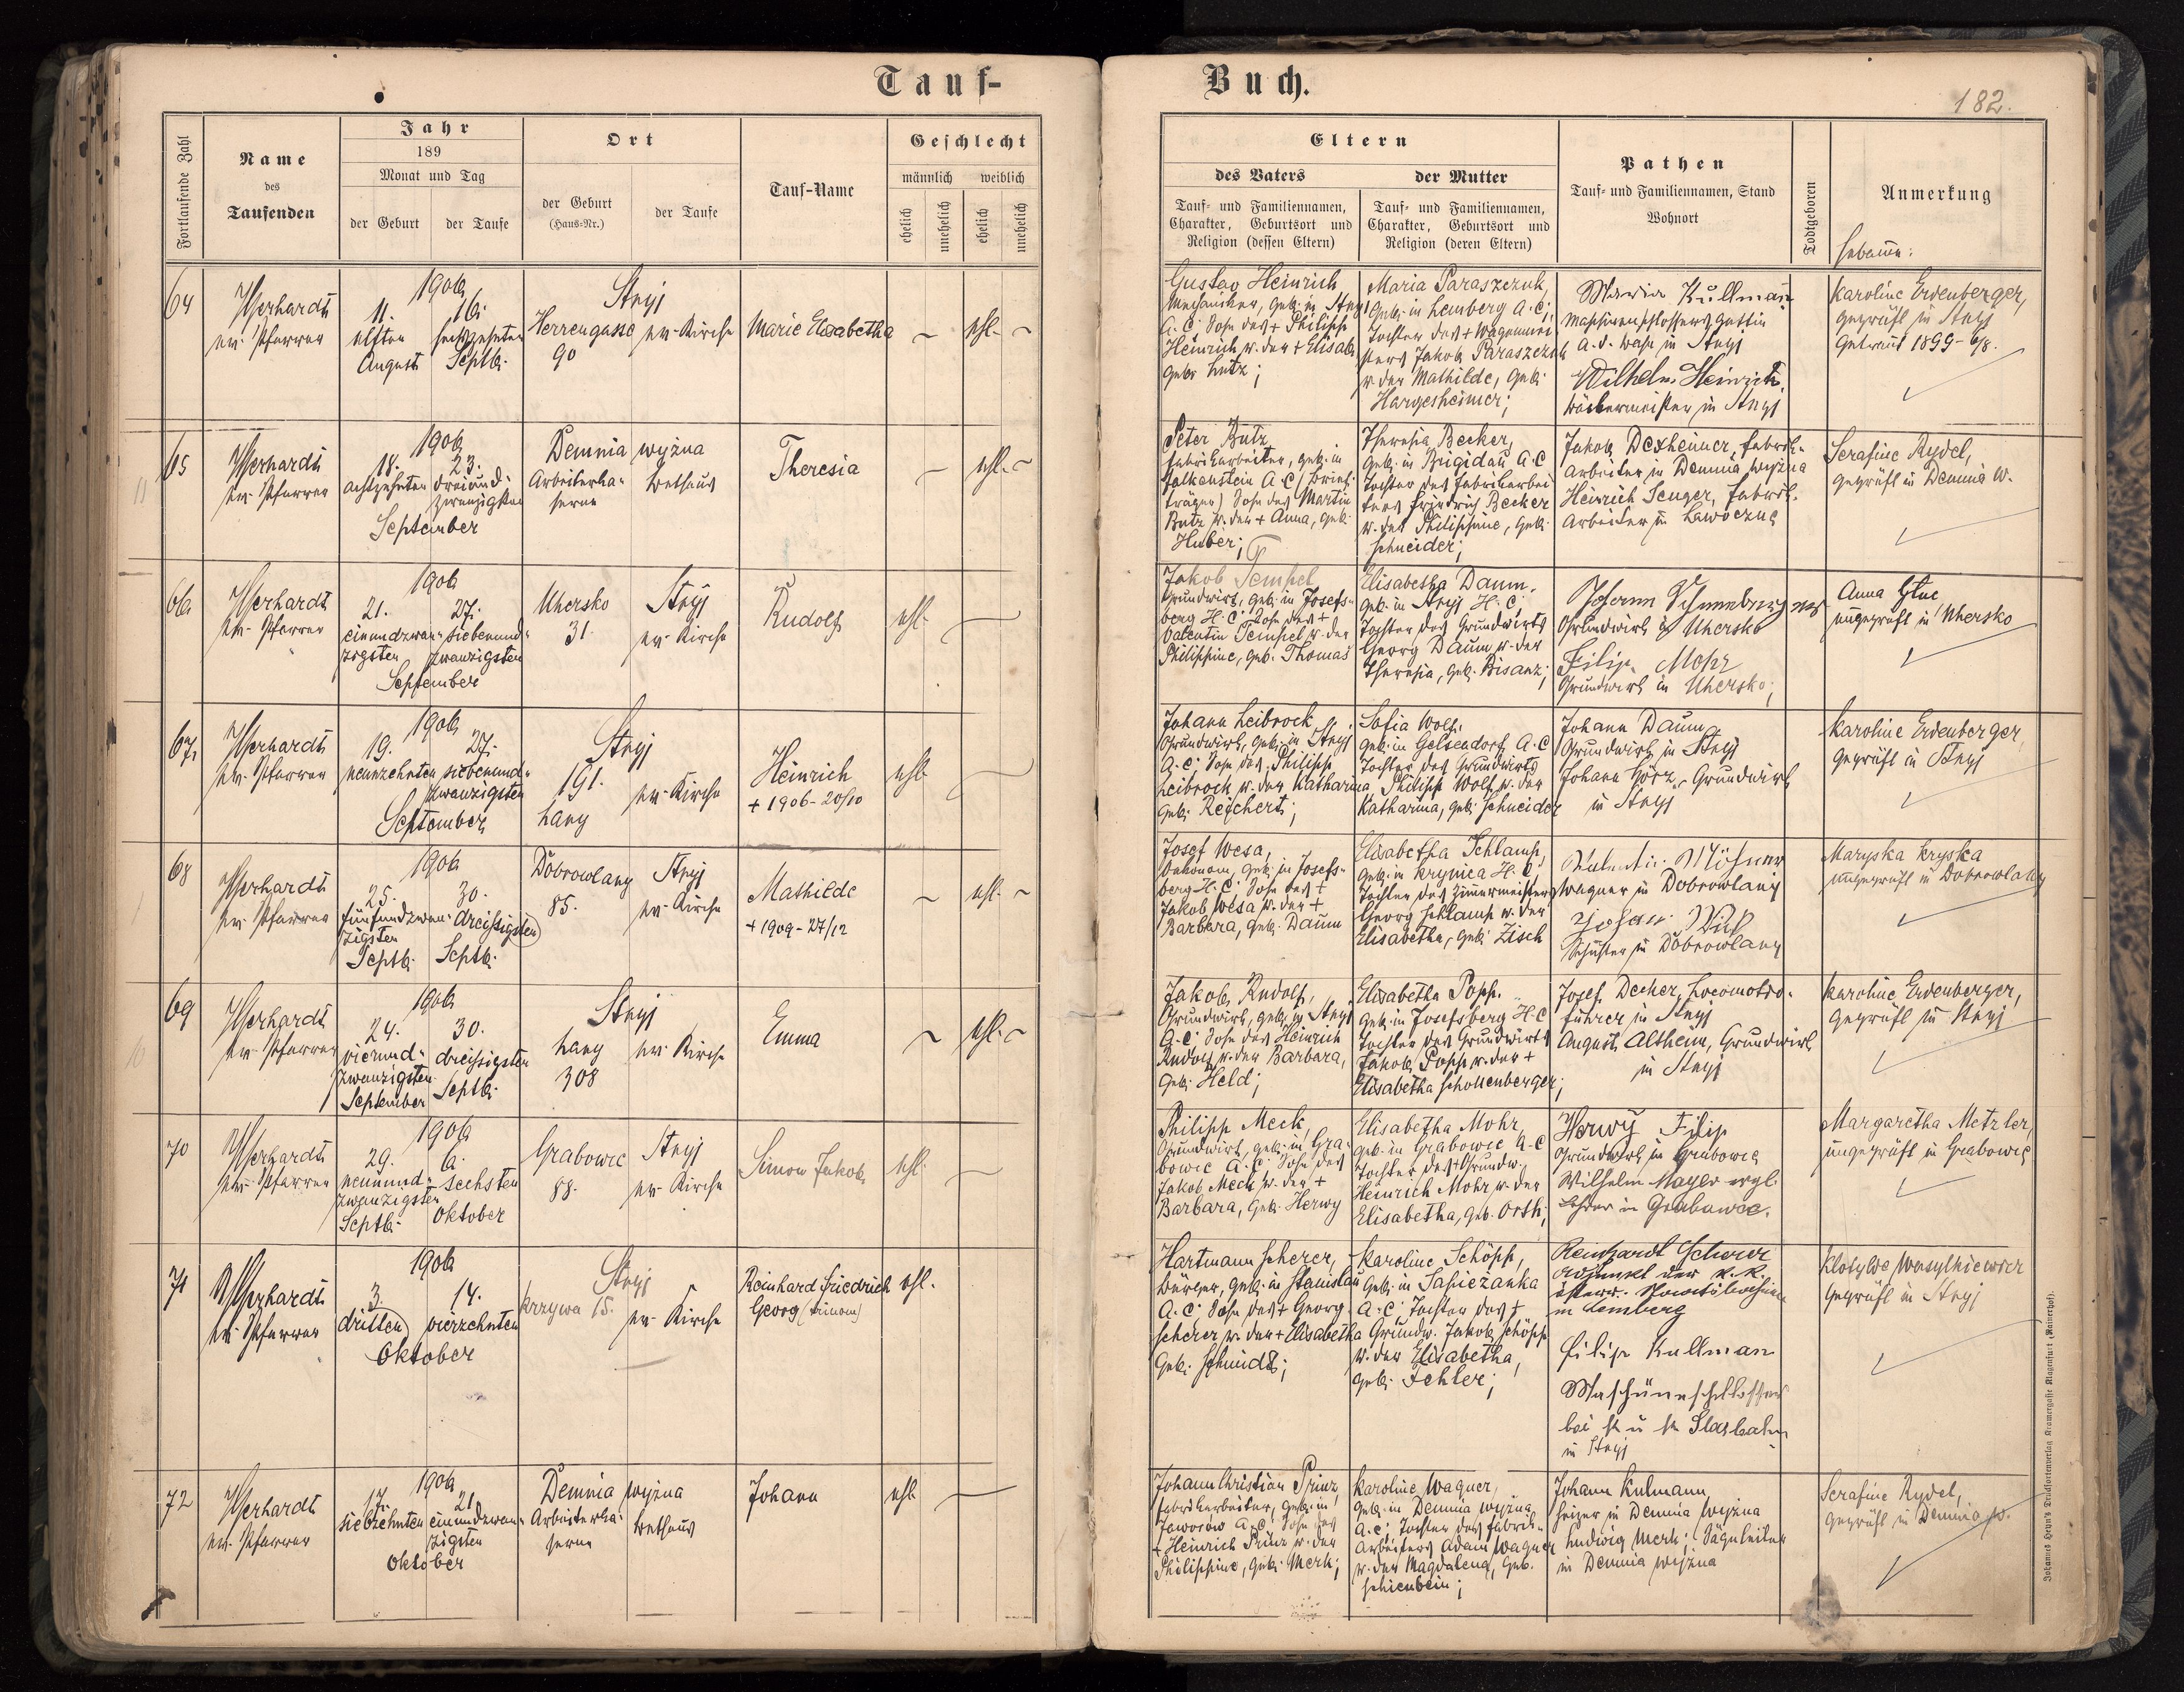 Tauf-
Buch.
182.
Fortlaufende Zahl
Name
des
Taufenden
Jahr
189
Monat und Tag
der Geburt
der Taufe
Ort
der Geburt
(Haus-Nr.)
der Taufe
Tauf-Name
Geschlecht
männlich
weiblich
ehelich
unehelich
ehelich
unehelich
Eltern
des Vaters
der Mutter
Tauf- und Familiennamen,
Charakter, Geburtsort und
Religion (dessen Eltern)
Tauf- und Familiennamen,
Charakter, Geburtsort und
Religion (deren Eltern)
Pathen
Tauf- und Familiennamen, Stand
Wohnort
Todtgeboren
Anmerkung
Hebamme:
64
ev. Pfarrer
1906
11.
elften
August
16.
sechszehnten
Septb.
Stryj
Herrengasse
90
ev. Kirche
Marie Elisabetha
ehl.
Gustav Heinrich
Mechaniker, geb. in Stryj
A. C. Sohn des + Philipp
Heinrich u. der + Elisab.
geb. Lutz;
Maria Paraszczuk,
geb. in Lemberg A. C.;
Tochter des + Wagenmei
sters Jakob Paraszczuk
u. der Mathilde, geb.
Hargesheimer;
Maria Kullmann
Maschinenschlossers Gattin
in Stryj
Wilhelm Heinrich,
in Stryj
Karoline Erdenberger,
geprüft in Stryj
Getraut 1899-6/8.
65
ev. Pfarrer
1906
18.
achtzehnten
23.
dreiund-
zwanzigsten
September
Demnia wyżna
Arbeiterka-
serne
Bethaus
Theresia
ehl.
Peter Butz
Fabrikarbeiter, geb. in
Falkenstein A. C. (Brief-
träger) Sohn des Martin
Butz u. der + Anna, geb.
Huber;
Theresia Becker,
geb. in Brigidau A. C
Tochter des Fabrikarbei
ters Friedrich Becker
u. der Philippine, geb.
Schneider;
Jakob Dexheimer, Fabrik-
arbeiter in Demnia wyżna
Heinrich Senger, Fabrik-
arbeiter in Ławoczne
Serafine Rydel,
geprüft in Demnia w.
66
ev. Pfarrer
1906
21.
einundzwan-
zigsten
27.
siebenund-
zwanzigsten
September
Uhersko
31.
Stryj
ev. Kirche
Rudolf
ehl.
Jakob Tempel
Grundwirt, geb. in Josefs-
berg H. C. Sohn des +
Valentin Tempel u. der
Philippine, geb. Thomas
Elisabetha Daum,
geb. in Stryj H. C.
Tochter des Grundwirts
Georg Daum u. der
Theresia, geb. Bisanz;
Grundwirt in Uhersko
Filip Mohr
Grundwirt in Uhersko;
ungeprüft in Uhersko
67
ev. Pfarrer
1906
19.
neunzehnten
27.
siebenund-
zwanzigsten
September
Stryj
191.
Łany
ev. Kirche
Heinrich
+ 1906-20/10
ehl.
Johann Leibrock
Grundwirt, geb. in Stryj
A. C. Sohn des Philipp
Leibrock u. der Katharina,
geb. Reichert;
Sofia Wolf,
geb. in Gelsendorf A. C
Tochter des Grundwirts
Philipp Wolf u. der
Katharina, geb. Schneider
Johann Daum
Grundwirt in Stryj
Johann Görz, Grundwirt
in Stryj
Karoline Erdenberger,
geprüft in Stryj
68
ev. Pfarrer
1906
25.
fünfundzwan-
zigsten
Septb.
30.
dreissigsten
Septb.
Dobrowlany
85.
Stryj
ev. Kirche
Mathilde
+ 1909-27/12
ehl.
Josef Wesa,
Oekonom, geb. in Josefs-
berg H. C. Sohn des +
Jakob Wesa u. der +
Barbara, geb. Daum
Elisabetha Schlamp,
geb. in Krynica H. C,
Tochter des Zimmermeisters
Georg Schlamp u. der
Elisabetha, geb. Zisch
Wagner in Dobrowlany
Schuster in Dobrowlany
Maryska Kryska
ungeprüft in Dobrowlany
69
ev. Pfarrer
1906
24.
vierund-
zwanzigsten
September
30.
dreissigsten
Septb.
Stryj
Łany
308
ev. Kirche
Emma
ehl.
Jakob Rudolf,
Grundwirt, geb. in Stryj
A. C. Sohn des Heinrich
Rudolf u. der Barbara,
geb. Held;
Elisabetha Popp,
geb. in Josefsberg H. C
Tochter des Grundwirts
Jakob Popp u. der +
Elisabetha Schollenberger;
Josef Decker, Locomotiv-
führer in Stryj
August Altheim, Grundwirt
in Stryj
Karoline Erdenberger,
geprüft in Stryj
70
ev. Pfarrer
1906
29.
neunund-
zwanzigsten
Septb.
6.
sechsten
Oktober
Grabowic
88.
Stryj
ev. Kirche
Simon Jakob
ehl.
Philipp Meck,
Grundwirt, geb. in Gra-
bowic A. C. Sohn des
Jakob Meck u. der +
Barbara, geb. Herwy
Elisabetha Mohr,
geb. in Grabowic A. C
Tochter des + Grundw.
Heinrich Mohr u. der
Elisabetha, geb. Orth;
Herwy Filip
Grundwirt in Grabowic
Wilhelm Mayer evgl.
Lehrer in Grabowce.
Margaretha Metzler,
ungeprüft in Grabowic
71
ev. Pfarrer
1906
3.
dritten
14.
vierzehnten
Oktober
Stryj
Krzywa 15.
ev. Kirche
Reinhard Friedrich
Georg (trinom)
ehl.
Hartmann Scherer,
geb. in Stanislau
A. C. Sohn des + Georg
Scherer u. der + Elisabetha
geb. Schmidt;
Karoline Schöpp,
geb. in Sapiezanka
A. C; Tochter des +
Grundw. Jakob Schöpp
u. der Elisabetha,
geb. Fehler;
Reinhardt Scherer
Adjunkt der k. k.
in Lemberg
Filip Kullman
Maschinenschlosser
in Stryj
geprüft in Stryj
72
ev. Pfarrer
1906
17.
siebzehnten
21.
einundzwan-
zigsten
Oktober
Demnia wyżna
Arbeiterka-
serne
Bethaus
Johann
ehl.
Johann Christian Prinz,
Fabrikarbeiter, geb. in
Jaworow A. C. Sohn des
+ Heinrich Prinz u. der
Philippine, geb. Merk;
Karoline Wagner,
geb. in Demnia wyżna,
A. C; Tochter des Fabrik-
arbeiters Adam Wagner
u. der Magdalena, geb.
Schienbein;
Johann Kulmann,
Heizer in Demnia wyżna
Ludwig Merk; Sägeleiter
in Demnia wyżna
Serafine Rydel,
geprüft in Demnia w.